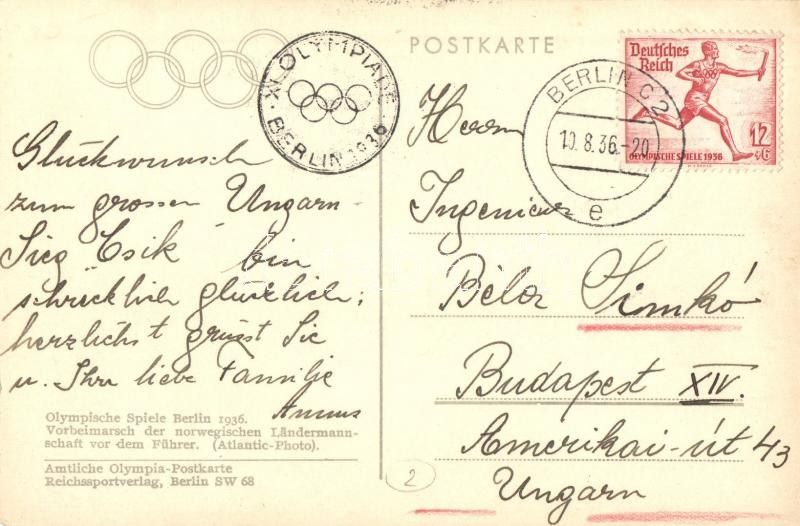 POSTKARTE
XI. OLYMPIADE
BERLIN 1936
BERLIN C2
10.8.36.-20
e
Deutsches
Reich
12
+6
OLYMPISCHE SPIELE 1936
Glückwunsch
zum grossen Ungarn-
Sieg Csik bin
schrecklich glücklich;
herzlichst grüsst Sie
u. Ihre liebe Familie
Herrn
Ingenieur
Béla Simkó
Budapest XIV.
Amerikai-út 43
Ungarn
Olympische Spiele Berlin 1936.
Vorbeimarsch der norwegischen Ländermann-
schaft vor dem Führer. (Atlantic-Photo).
Amtliche Olympia-Postkarte
Reichssportverlag, Berlin SW 68
2